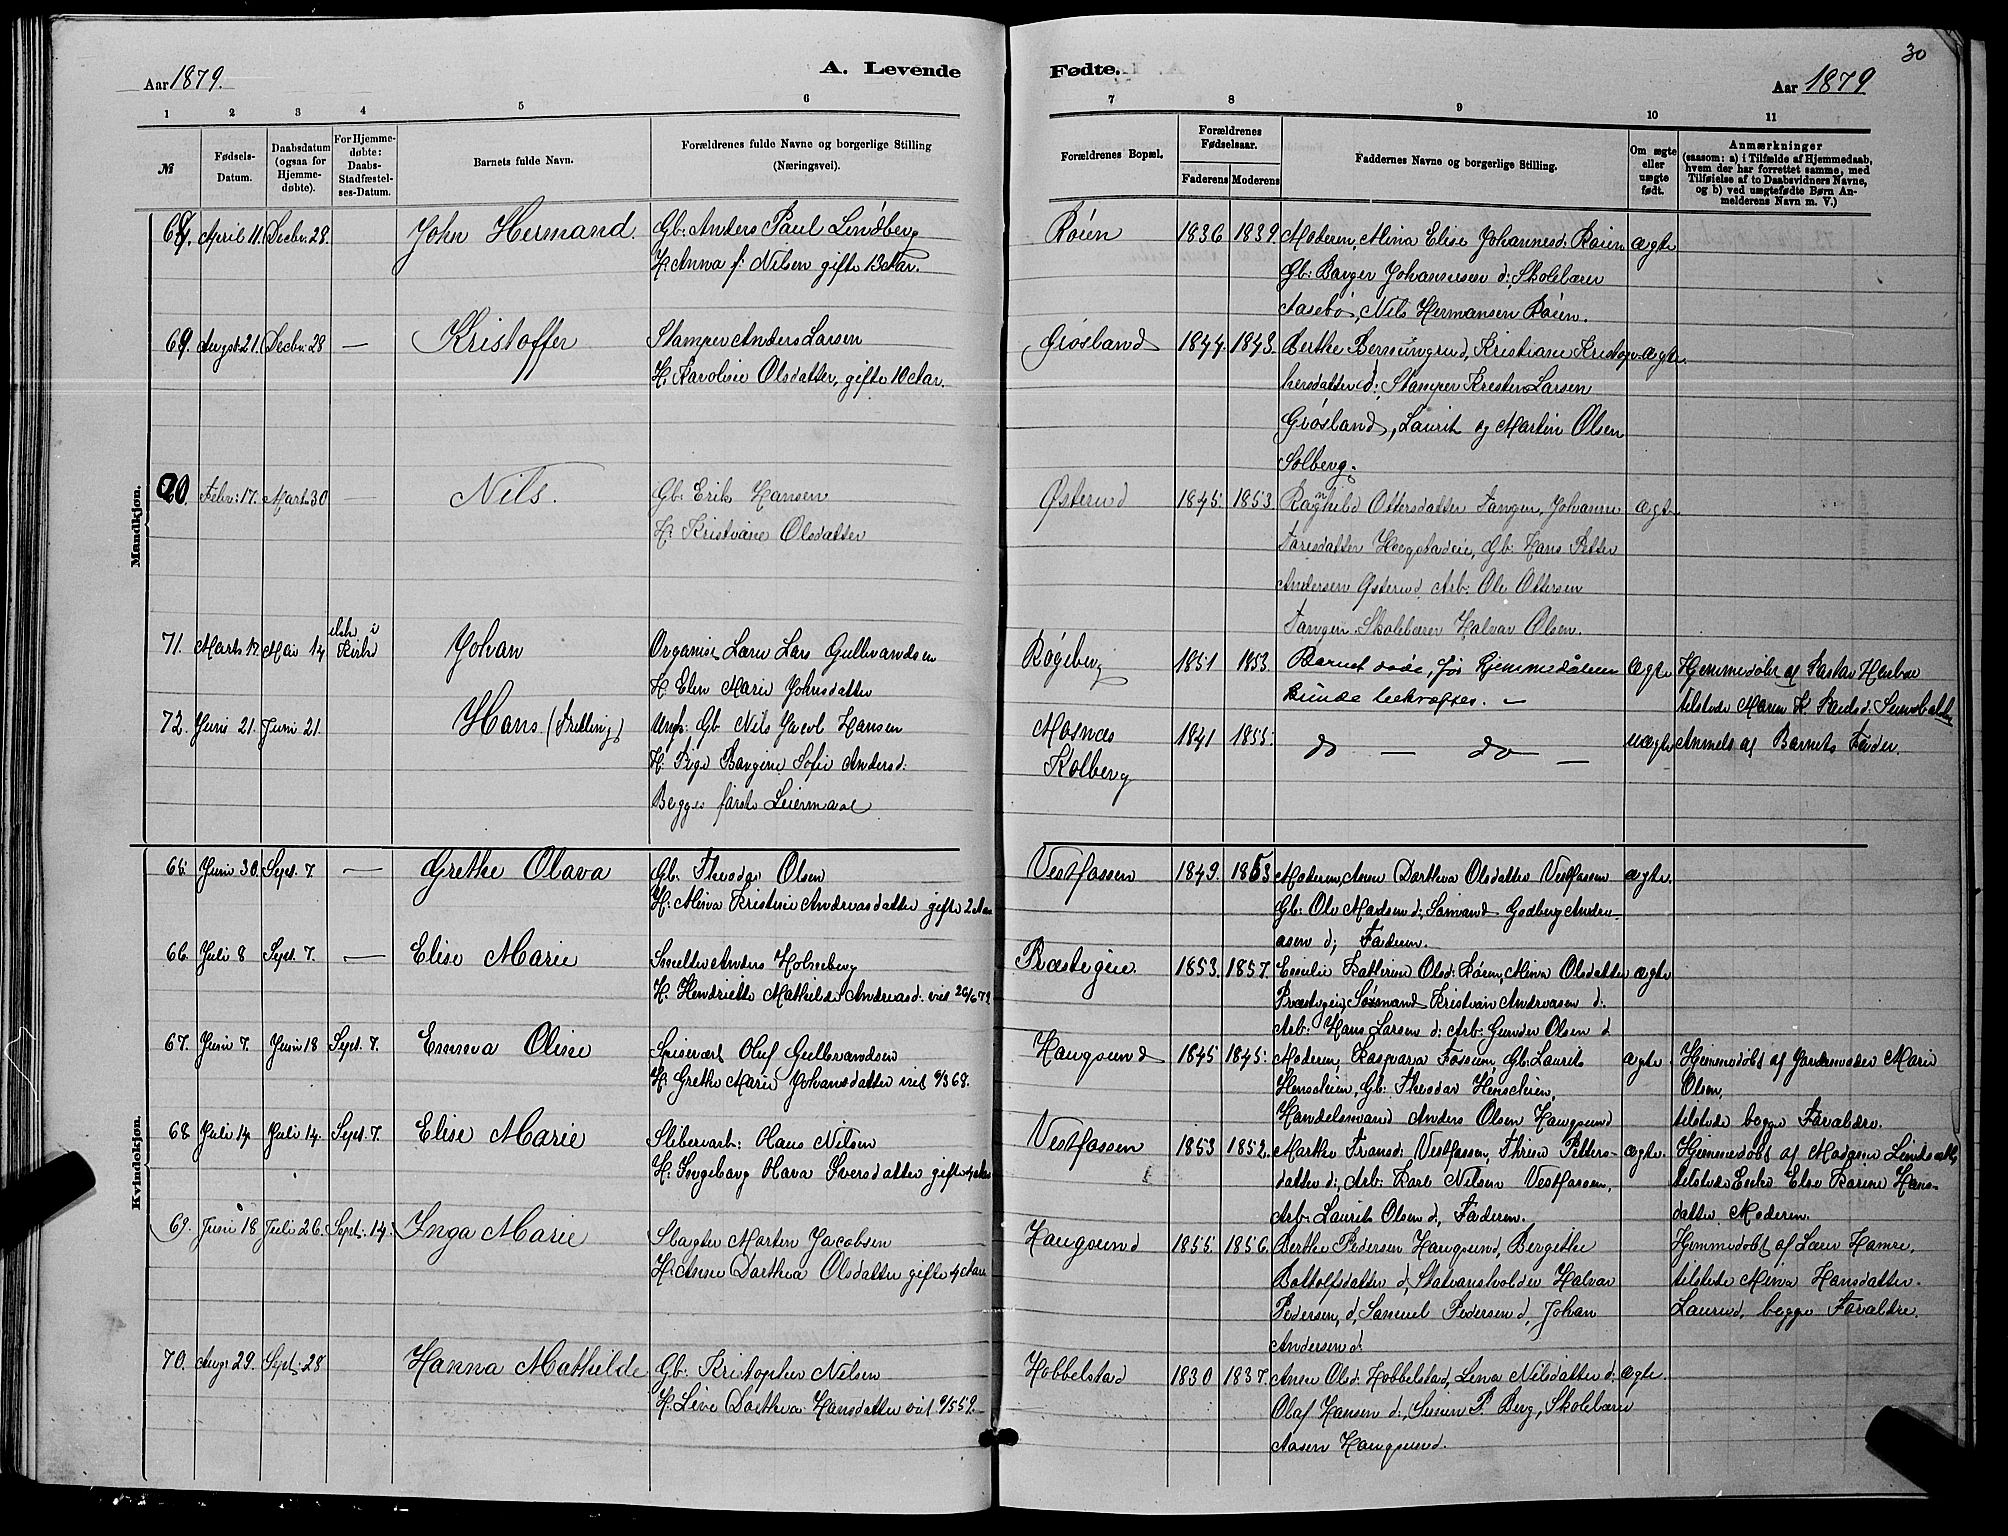 30
Aar 1879.
A. Levende
Fødte.
Aar 1879
1 2 3 4 5 6 7 8 9 10 11
№
Fødsels-
Datum.
Daabsdatum
(ogsaa for
Hjemme-
døbte).
For Hjemme-
døbte:
Daabs-
Stadfæstel-
ses-Datum.
Barnets fulde Navn.
Forældrenes fulde Navne og borgerlige Stilling
(Næringsvei).
Forældrenes Bopæl.
Forældrenes
Fødselsaar.
Faderens Moderens
Faddernes Navne og borgerlige Stilling.
Om ægte
eller
uægte
født.
Anmærkninger
(saasom: a) i Tilfælde af Hjemmedaab,
hvem der har forrettet samme, med
Tilføielse af to Daabsvidners Navne,
og b) ved uægtefødte Børn An-
melderens Navn m. V.)
Mandkjøn.
April 11. Decbr. 28. John Hermand. Gb: Anders Paul Lindberg
H: Anna f: Nilsen gifte 13 Aar.
Røien 1836 1839. Moderen, Mina Elise Johannesd: Røien ægte
Gb: Johannesen d:, Skolelærer
Aasebø, Nils Hermansen Røien.
69. Augst. 21. Decbr. 28 — Kristoffer Stamper Anders Larsen
H: Karoline Olsdatter, gifte 10 Aar.
Grøsland 1844 1843. Berthe Kristiane Kristop- ægte
hersdatter d:, Stamper Larsen
Grøsland, Laurits og Martin Olsen
Solberg.
70. Febr: 17. Marts 30 — Nils. Gb: Erik Hansen
H: Kristiane Olsdatter
Østerud 1845. 1853. Ragnhild Ottersdatter Tangen, Johanne ægte
Gb: Hans Petter
Andersen Østerud, Arb: Ole Ottersen
Tangen. Skolelærer Halvor Olsen.
71. Marts 17. Mai 14 Kirke Johan Organist Lærer Lars Gulbrandsen
H: Elen Marie Johnsdatter
Røgeberg 1851 1853. Barnet døde, før Hjemmedåben ægte Hjemmedøbt af
kunde bekræftes. — tilstede Maren K.
72. Juni 21. Juni 21. Hans (Tvilling) Ungk: Gb Nils Jacob Hansen
H: Pige Sofie Andersd:
Begges første Leiermaal
Mosnæs
Kolberg
1841 1855. do — do — uægte Anmeldt af Barnets Fader.
Kvindekjøn.
65. Juni 30. Sept. 7. — Grethe Olava Gb: Theodor Olsen
H: Mina Kristine Andreasdatter gifte 2 Aar
Vestfossen 1849. 1853. Moderen, Anne Dorthea Olsdatter Vestfossen ægte.
Gb: Ole Madsen d:, Sømand Godberg Andre-
asen d; Faderen.
66. Juli 8 Sept. 7. — Elise Marie Smelter Anders Holmeberg
H: Hendrikke Mathilde Andreasd: viet 26/6 79.
Præstegeie. 1853. 1857. Emilie Katterine Olsd: Røren, Mina Olsdatter ægte
Præstegeie, Sømand Kristian Andreasen d:
Arb: Hans Larsen d: Arb: Gunder Olsen d
67. Juni 7. Juni 18 Sept. 7. Emma Oline Spisevært Oluf Gulbrandsen
H: Grethe Marie Johansdatter viet 9/3 68.
Haugsund 1845 1845. Moderen, Fossum, Gb: Laurits ægte Hjemmedøbt af Jordemoder Marie
Henschien, Gb: Theodor Henschien, Olsen,
Handelsmand Anders Olsen Haugsund tilstede begge Forældre.
68. Juli 14. Juli 14. Sept. 7. Elise Marie Sliberarb: Hans Nilsen
H: Ingeborg Olava Iversdatter gifte 4 Aar
Vestfossen 1853 1852. Marthe Fransd: Vestfossen, Thrine Petters- ægte. Hjemmedøbt af Madam
datter d:, Arb: Karl Nilsen Vestfossen, tilstede Enke Else Karine Hans-
Arb: Laurits Olsen d:, Faderen. datter, Moderen.
69. Juni 18 Juli 26. Sept. 14. Inga Marie Slagter Morten Jacobsen
H: Anne Dorthea Olsdatter gifte 4 Aar
Haugsund 1855. 1856. Berthe Pedersen Haugsund, Bergithe Hjemmedøbt af Lærer Hamre,
Bottolfsdatter d, Halvor tilstede Mina Hansdatter
Pedersen, d, Samuel Pedersen d, Johan begge Forældre.
Andersen d.
70. Aug: 29. Sept: 28 Hanna Mathilde Gb: Kristopher Nilsen
H: Live Dorthea Hansdatter viet 9/5 59.
Hobbelstad 1830 1837. Anne Olsd: Hobbelstad, Lena Nilsdatter d: ægte.
Olaf Hansen d:, P. Berg, Skolelærer
Aasen Haugsund.